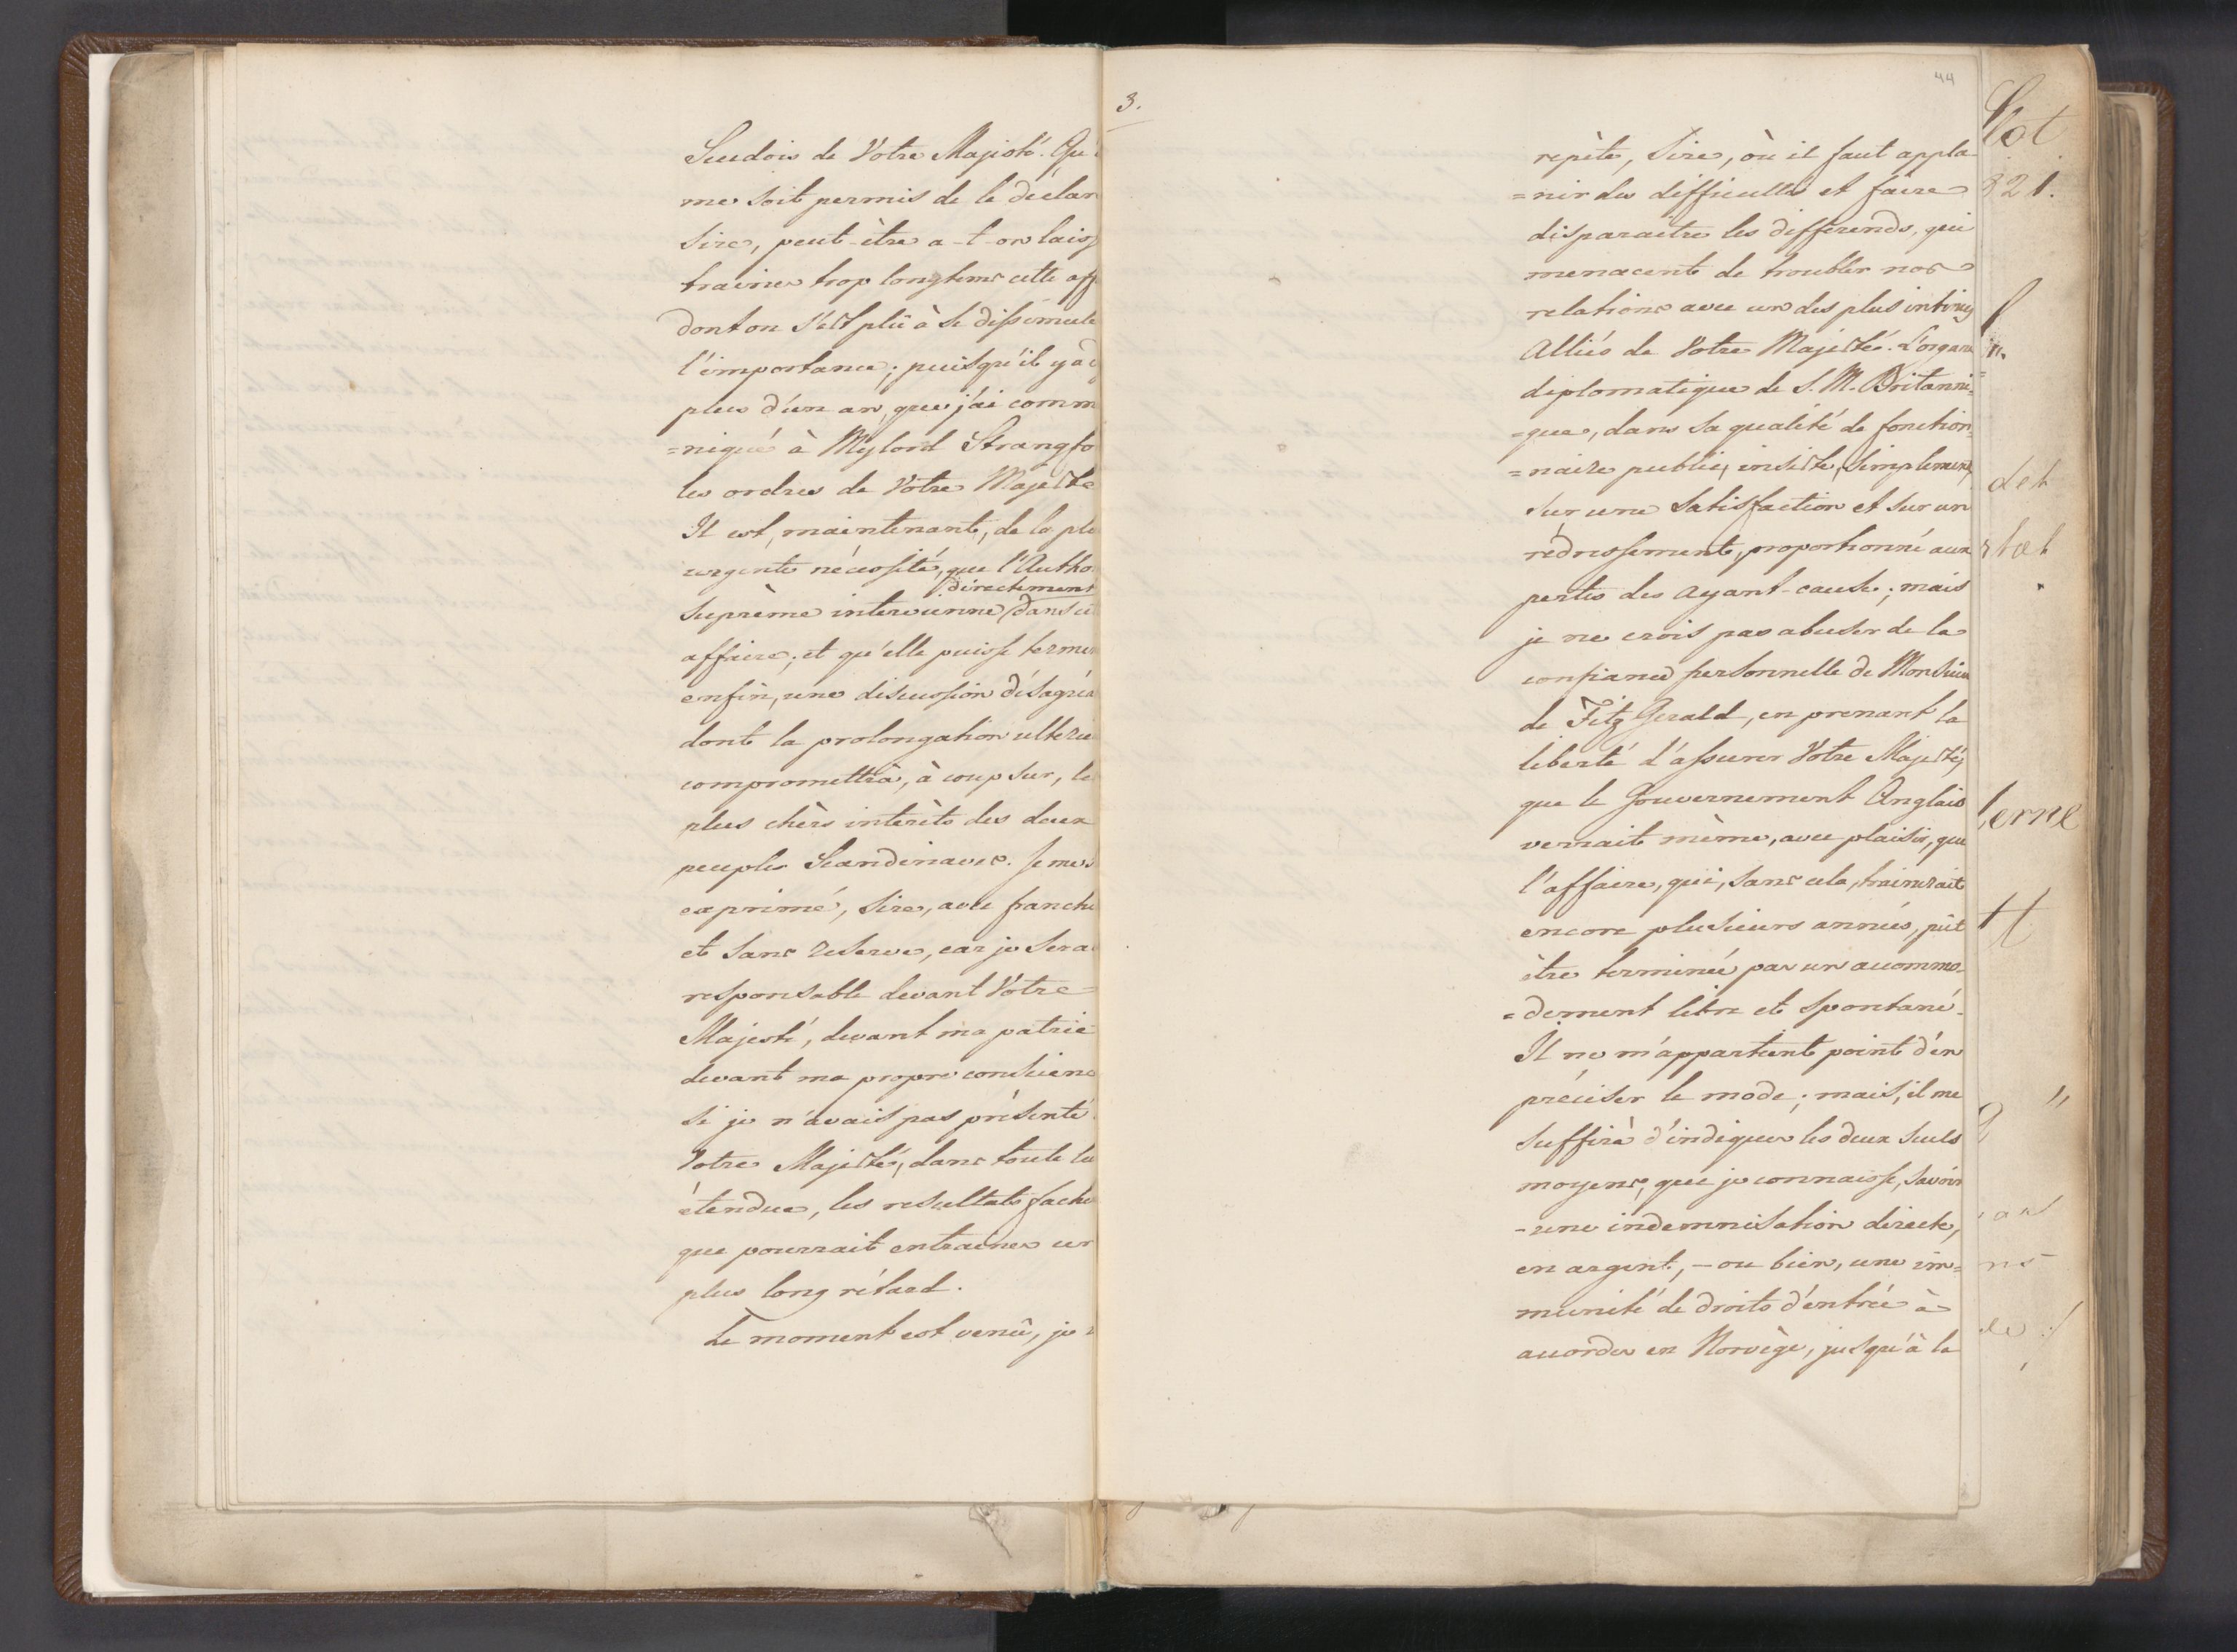 Suedois de Votre Majesté. Qu'
me soit permis de le déclar
Sire, peut-être a-t-on laiss
trainer trop longtems cette aff
dont on s'est plû à se dissimule
l'importance; puisqu'il y a d
plus d'un an, que j'ai comm
=niqué à Mylord Strangfo
les ordres de Votre Majesté
Il est, maintenant, de la plu
urgente nécessité, que l'Autho
directement
Suprème intervienne dans ce
affaire; et qu'elle puisse termin
enfin, une discussion désagréa
dont la prolongation ulterie
compromettrà, à coup sur, le
plus chèrs interèts des deux
peuples Scandinaves. Je me s
exprimé, Sire, avec franche
et sans reserve, car je sera
responsable devant Votre
Majesté, devant ma patrie
devant ma propre conscienc
si je n'avais pas présenté
Votre Majesté, dans toute leu
étendue, les resultats fache
que pourrait entrainer un
plus long rétard.
Le moment est venû, je r
3.
44
repète, Sire, où il faut appla
=nir les difficultés et faire
disparaitre les differends, qui
menacent de troubler nos
relations avec un des plus intimes
Alliés de Votre Majesté. L'organe
diplomatique de S. M. Britanni=
=que, dans sa qualité de fonction=
=naire public, insiste, simplement,
sur une satisfaction et sur un
rédressement, proportionné aux
pertes des ayant-cause; mais
je ne crois pas abuser de la
confiance personnelle de Monsieur
de Fitz Gerald, en prenant la
liberté d'assurer Votre Majesté,
que le Gouvernement Anglais
verrait même, avec plaisir, que
l'affaire, qui, sans cela, trainerait
encore plusieurs années, pût
être terminée par un accommo=
=dement libre et spontané.
Il ne m'appartient point d'en
préciser le mode; mais, il me
suffirà d'indiquer les deux seuls
moyens, que je connaisse, savoir
-une indemnisation directe,
en argent, - ou bien, une im=
munité de droits d'entrée à
accorder en Norvège, jusqu'à la
821.
det